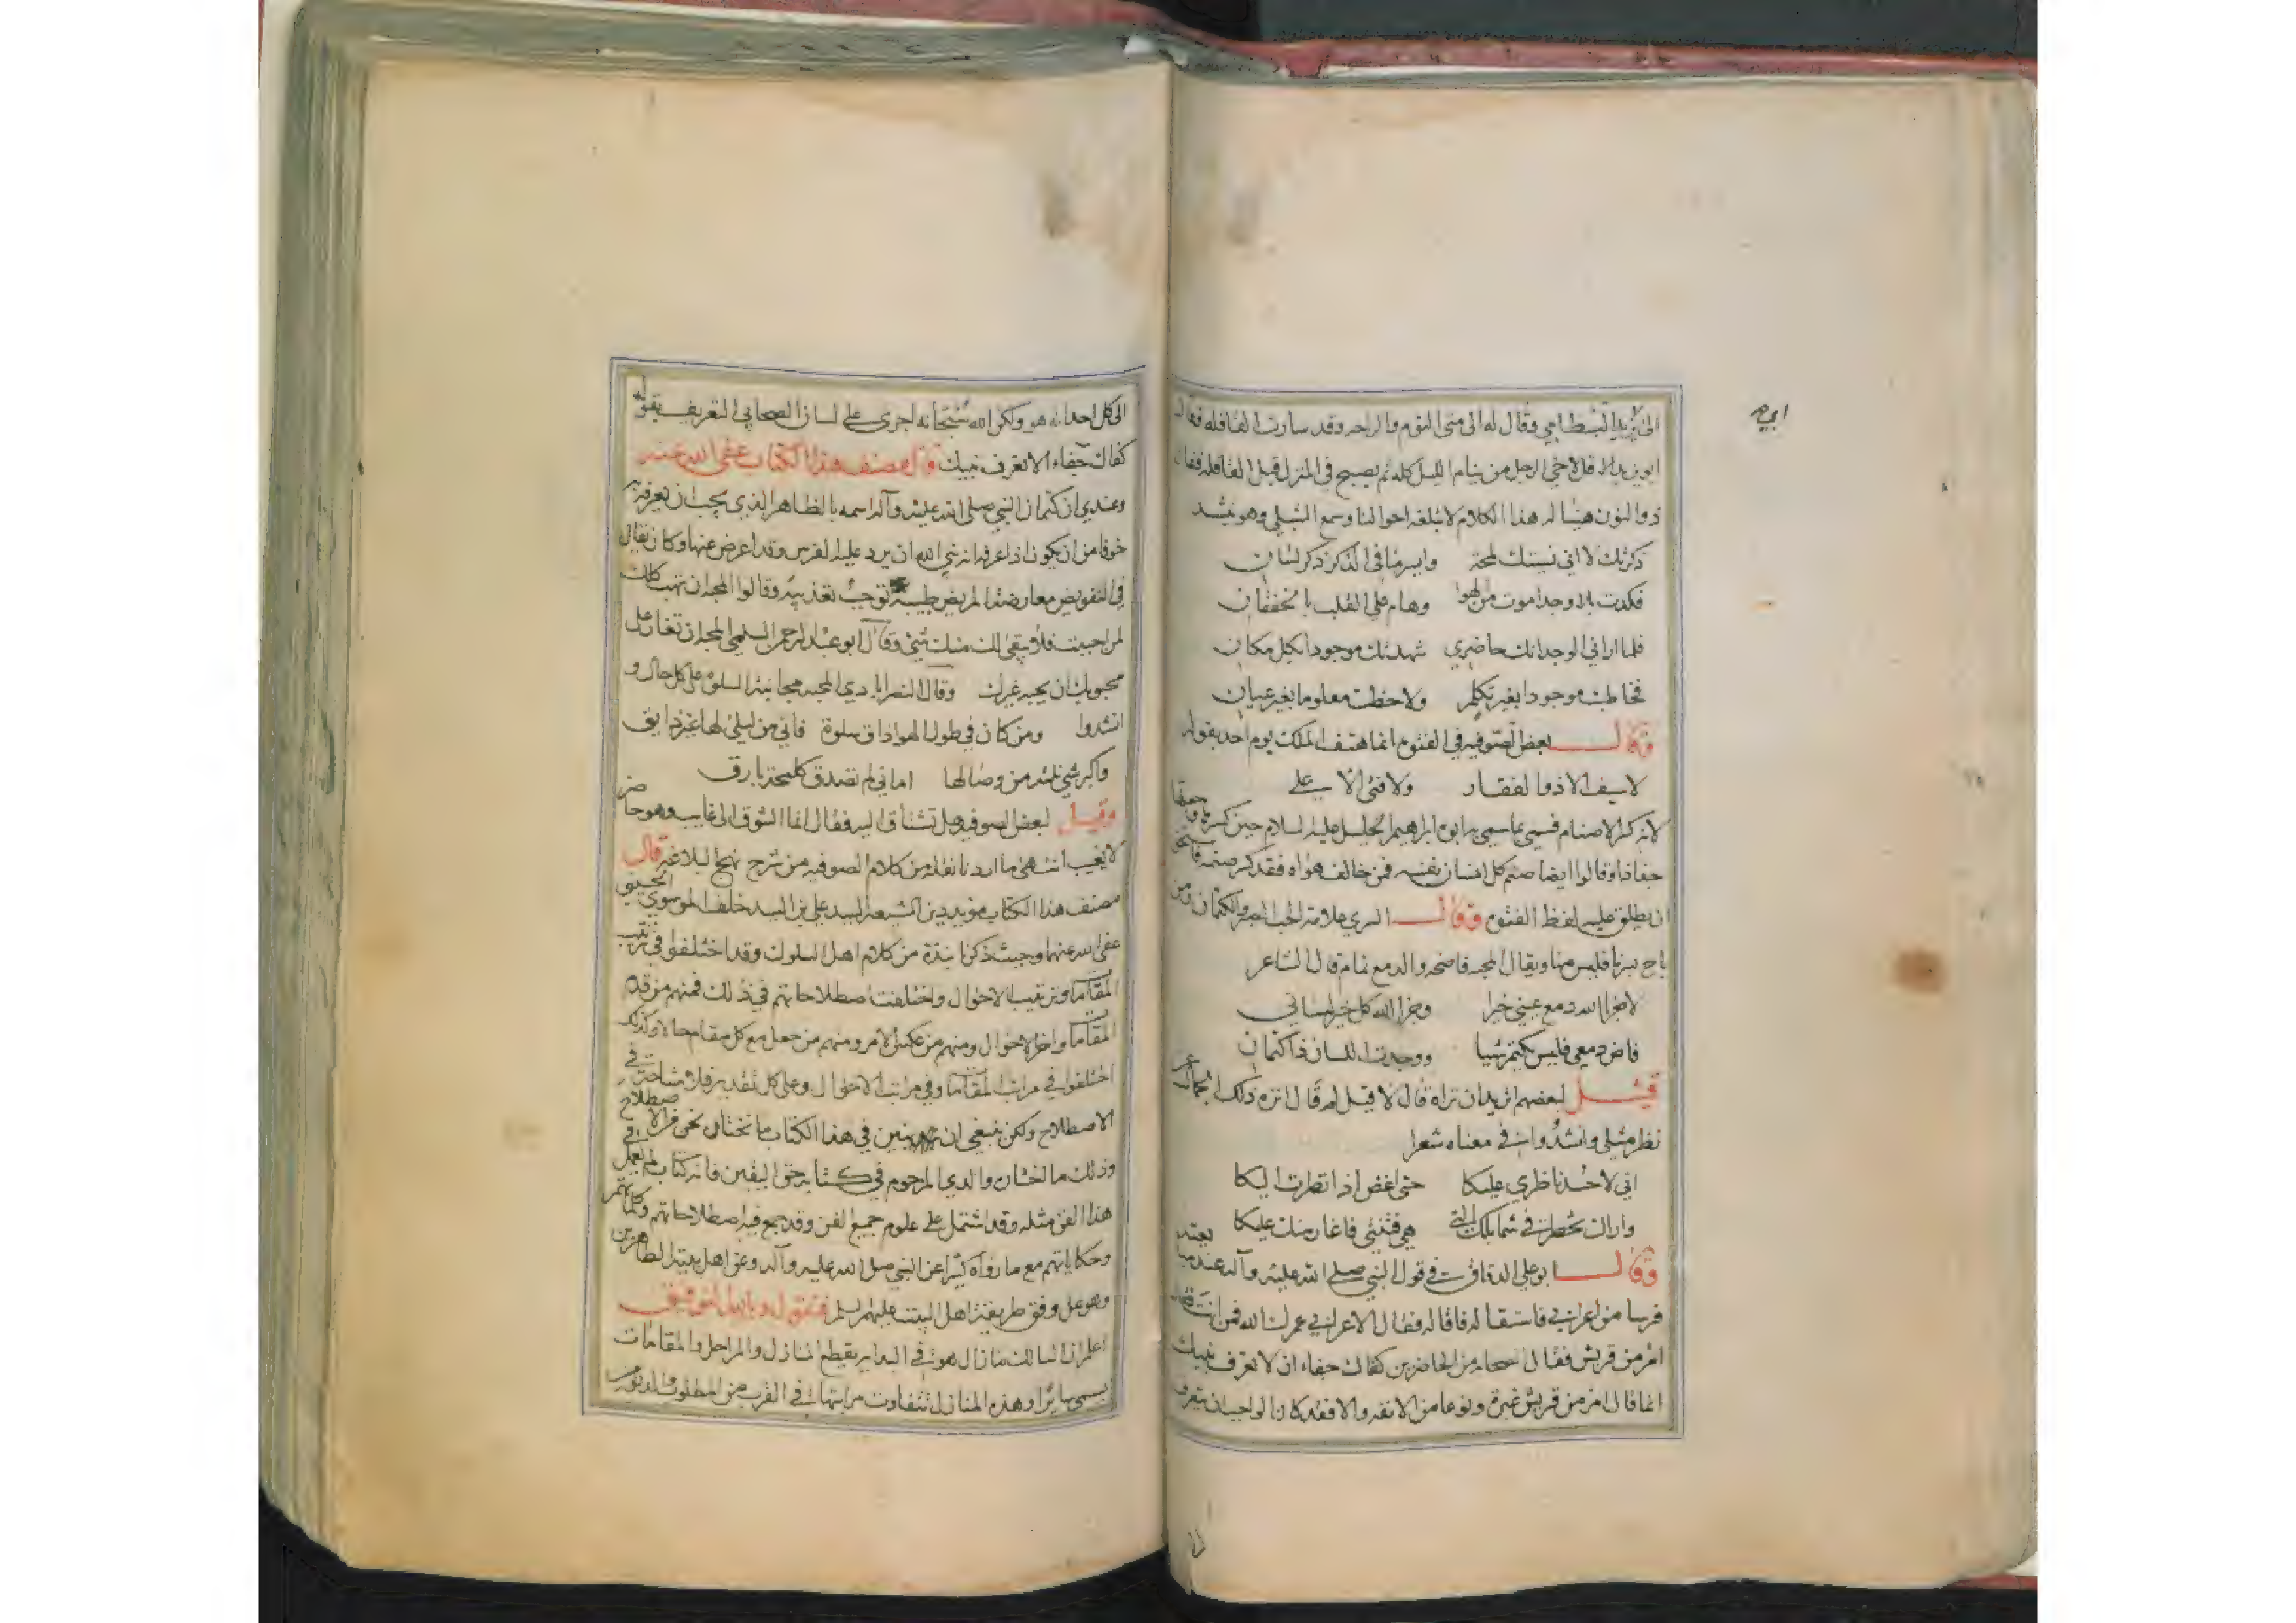 ابي ح
الى ابي يزيد البسطامي وقال له الى متى النوم والراحه وقد سارت القافله فقال
ابو يزيد له قل لاخي الرجل من ينام الليل كله ثم يصبح في المنزل قبل القافله فقال
ذوالنون هنيئا له هذا الكلام لا تبلغه احوالنا وسمع الشبلي وهو ينشد
ذكرتك لا اني نسيتك لمحة وايسر ما في الذكر ذكر لسان
فكدت بلا وجد اموت من الهوا وهام على القلب بالخفقان
فلما اراني الوجد انك حاضري شهدتك موجودا بكل مكان
فخاطبت موجودا بغير تكلم ولاحظت معلوما بغير عيان
وقال بعض الصوفيه في الفتوه انما هتف الملك يوم احد بقوله
لا سيف الا ذوالفقار ولا فتى الا علي
لانه كسر الاصنام فسمي بما سمي به ابوه ابراهيم الخليل عليه السلام حين كسرها وجعلها
جذاذا وقالوا ايضا صنم كل انسان نفسه فمن خالف هواه فقد كسر صنمه فاستحق
ان يطلق عليه لفظ الفتوه وقال السري علامة الحب الصبر والكتمان ومن
باح بسرنا فليس منا ويقال المحبه فاضحه والدمع نمام قال الشاعر
لا جزا الله دمع عيني خيرا وجزا الله كل خير لساني
فاض دمعي فليس يكتم شيا ووجدت اللسان ذا كتمان
قيل لبعضهم اتريد ان تراه قال لا قيل لم قال انزه ذلك الجمال عن
نظر مثلي وانشدوا في معناه شعرا
اني لاحسد ناظري عليكا حتى اغض اذا نظرت اليكا
واراك تخطر في شمايلك التي هي فتنتي فاغار منك عليكا
وقال ابو علي الدقاق في قول النبي صلى الله عليه وآله عند مبايعته
فرسا من اعرابي فاستقاله فاقاله فقال الاعرابي عمرك الله فمن انت قال
امرء من قريش فقال صحابه من الحاضرين كفاك جفاء ان لا تعرف نبيك
انما قال امرء من قريش غيرة ونوعا من الانفه والا فقد كان الواجب ان يتعرف
الى كل احد انه هو ولكن الله سبحانه اجرى على لسان الصحابي التعريف بقوله
كفاك جفاء الا تعرف نبيك قال مصنف هذا الكتاب عفى الله عنه
وعندي ان كتمان النبي صلى الله عليه وآله اسمه بالظاهر الذي يجب ان يعرفه به
خوفا من ان يكون اذا عرفه انه نبي الله ان يرد عليه الفرس وقد اعرض عنها وكان يقال
في التفويض معارضة المريض طبيبه توجب تعذيبه وقالوا المحبه ان تهب كلك
لمن احببت فلا يبقى لك منك شيء وقال ابو عبد الرحمن السلمي المحبه ان تغار على
محبوبك ان يحبه غيرك وقال النصرابادي المحبه مجانبة السلو على كل حال و
انشدوا ومن كان في طول الهوا ذاق سلوة فاني من ليلى لها غير ذايق
واكبر شي نلته من وصالها اماني لم تصدق كلمحة بارق
وقيل لبعض الصوفيه هل تشتاق اليه فقال انما الشوق الى غايب وهو حاضر
لا يغيب انتهى ما اردنا نقله من كلام الصوفيه من شرح نهج البلاغه قال
مصنف هذا الكتاب مؤيد دين الشيعه السيد علي بن السيد خلف الموسوي الحسيني
عفى الله عنهما وحيث ذكرنا نبذة من كلام اهل السلوك وقد اختلفوا في ترتيب
المقامات وترتيب الاحوال واختلفت اصطلاحاتهم في ذلك فمنهم من قدم
المقامات واخر الاحوال ومنهم من عكس الامر ومنهم من جعل مع كل مقام حالا وكذلك
اختلفوا في مراتب المقامات وفي مراتب الاحوال وعلى كل تقدير فلا مشاحة في
الاصطلاح ولكن ينبغي ان نبين في هذا الكتاب ما نختاره نحن من الاصطلاح
وذلك ما اختاره والدي المرحوم في كتابه حق اليقين فانه كتاب لم يعمل في
هذا الفن مثله وقد اشتمل على علوم جميع الفن وقد جمع فيه اصطلاحاتهم وكلماتهم
وحكاياتهم مع ما رواه كثيرا عن النبي صلى الله عليه وآله وعن اهل بيته الطاهرين
وهو على وفق طريقة اهل البيت عليهم السلم فنقول وبالله التوفيق
اعلم ان السالك ما زال هو في السير يقطع المنازل والمراحل والمقامات
يسمى سائرا وهذه المنازل تتفاوت مراتبها في القرب من المطلوب والدنو